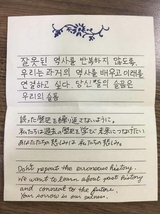 잘못된 역사를 반복하지 않도록,
우리는 과거의 역사를 배우고 미래를
연결하고 싶다. 당신들의 슬픔은
우리의 슬픔
誤った歴史を繰り返さないように。
私たちは過去の歴史を学び未来につなげたい
あなたたちの悲しみは私たちの悲しみ。
Don't repeat the erroneous history.
We want to learn about past history
and connect to the future.
Your sorrow is our sorrow.